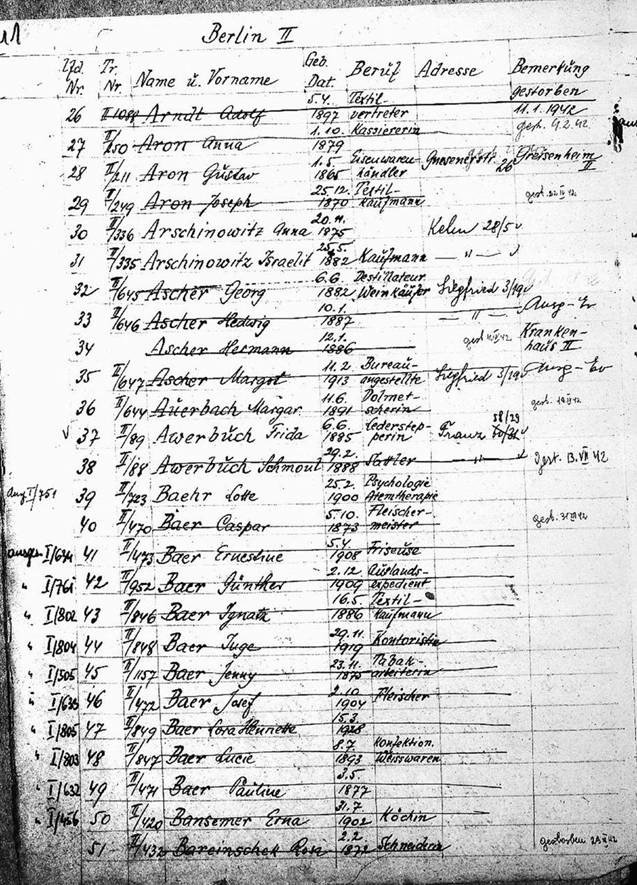 Berlin II
Lfd. Nr. Tr. Nr. Name u. Vorname Geb. Dat. Beruf Adresse Bemerkung
26 II 1088 Arndt Adolf 5.4. 1897 Textil- vertreter gestorben 11.1.1942
27 II/250 Aron Anna 1.10. 1879 Kassiererin gest. 9.2.42
28 II/211 Aron Gustav 1.5. 1865 Eisenwaren- händler Gneisenaustr. 26 Greisenheim II
29 II/249 Aron Joseph 25.12. 1870 Textil- kaufmann
30 II/336 Arschinowitz Anna 20.11. 1875 Keln 28/5
31 II/335 Arschinowitz Israelit 1882 Kaufmann — " —
32 II/645 Ascher Georg 6.6. 1882 Destillateur Weinküfer Siegfried 3/19
33 II/646 Ascher Hedwig 10.1. 1887 — " — Ausg-Ev
34 Ascher Hermann 12.1. 1886 Kranken- haus II
35 II/647 Ascher Margot 11.2. 1913 Bureau- angestellte Siegfried 3/19 Ausg-Ev
36 II/644 Auerbach Margar. 11.6. 1891 Dolmet- scherin
37 II/89 Awerbuch Frida 6.6. 1885 Lederstep- perin Franz 58/29
38 II/88 Awerbuch Schmoul 29.2. 1888 Sattler — " — gest. 13.VII 42
ausg. I/751 39 II/723 Baehr Lotte 25.2. 1900 Psychologie Atemtherapie
40 II/470 Baer Caspar 5.10. 1873 Fleischer- meister
ausge. I/634 41 II/473 Baer Ernestine 5.4. 1908 Friseuse
" I/761 42 II/952 Baer Günther 2.12. 1909 Auslands- expedient
" I/802 43 II/846 Baer Ignatz 16.5. 1886 Textil- kaufmann
" I/804 44 II/848 Baer Inge 29.11. 1919 Kontoristin
" I/505 45 II/1157 Baer Jenny 23.11. 1875 Tabak- arbeiterin
" I/633 46 II/472 Baer Josef 2.10. 1904 Fleischer
" I/805 47 II/849 Baer Lora Henriette 15.3. 1928
" I/803 48 II/847 Baer Lucie 8.7. 1893 Konfektion. Weisswaren
" I/632 49 II/471 Baer Pauline 3.5. 1877
" I/456 50 II/420 Bansemer Erna 31.7. 1902 Köchin
51 II/432 Bareinscheck Rosi 2.2. 1872 Schneiderin